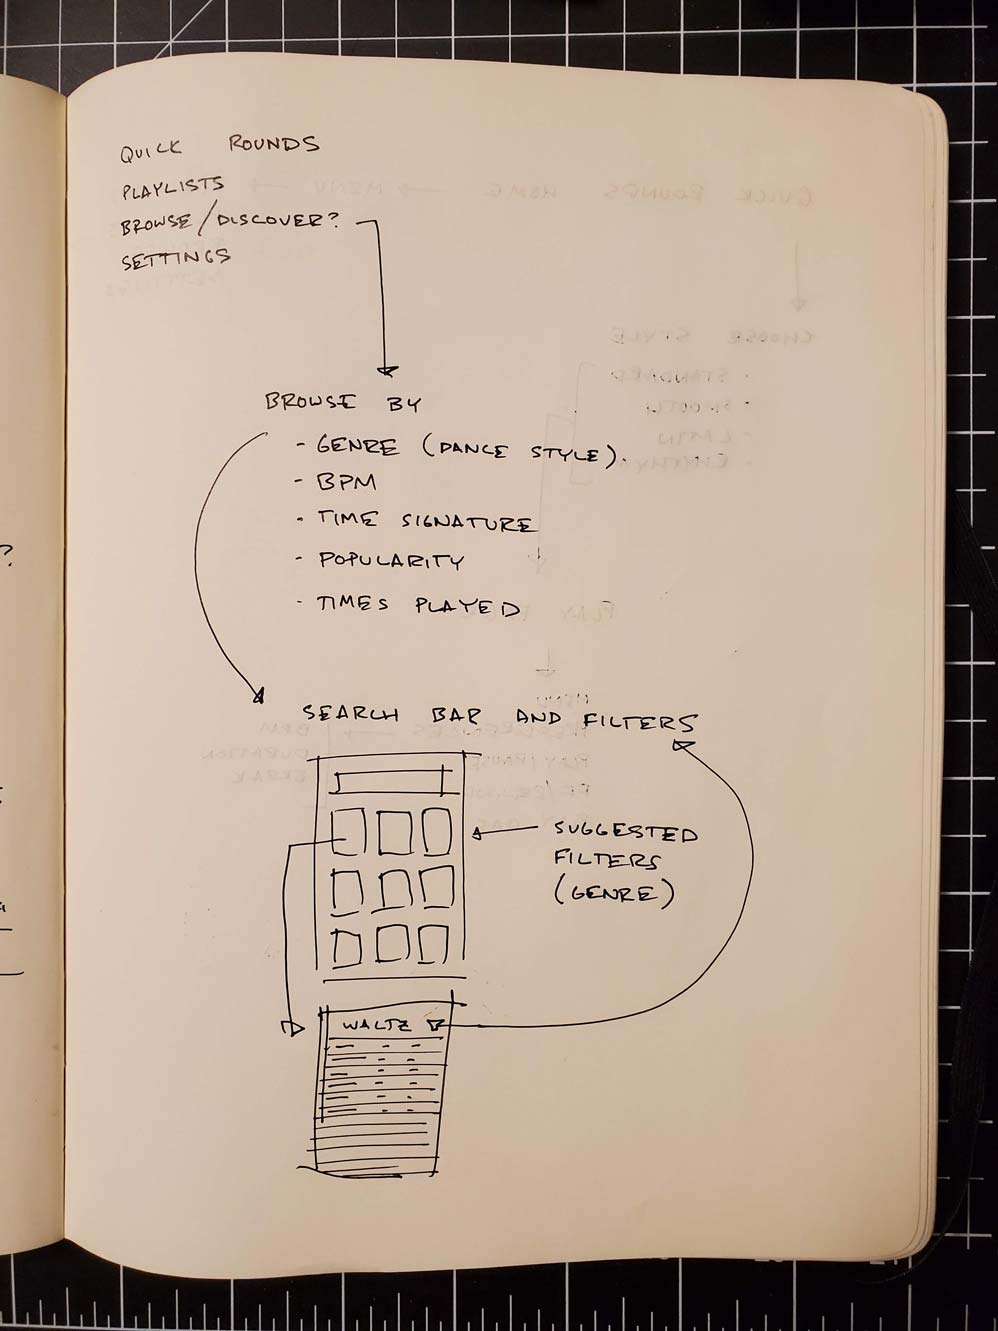 QUICK ROUNDS
PLAYLISTS
BROWSE/DISCOVER?
SETTINGS
BROWSE BY
- GENRE (DANCE STYLE).
- BPM
- TIME SIGNATURE
- POPULARITY
- TIMES PLAYED
SEARCH BAR AND FILTERS
SUGGESTED
FILTERS
(GENRE)
WALTZ